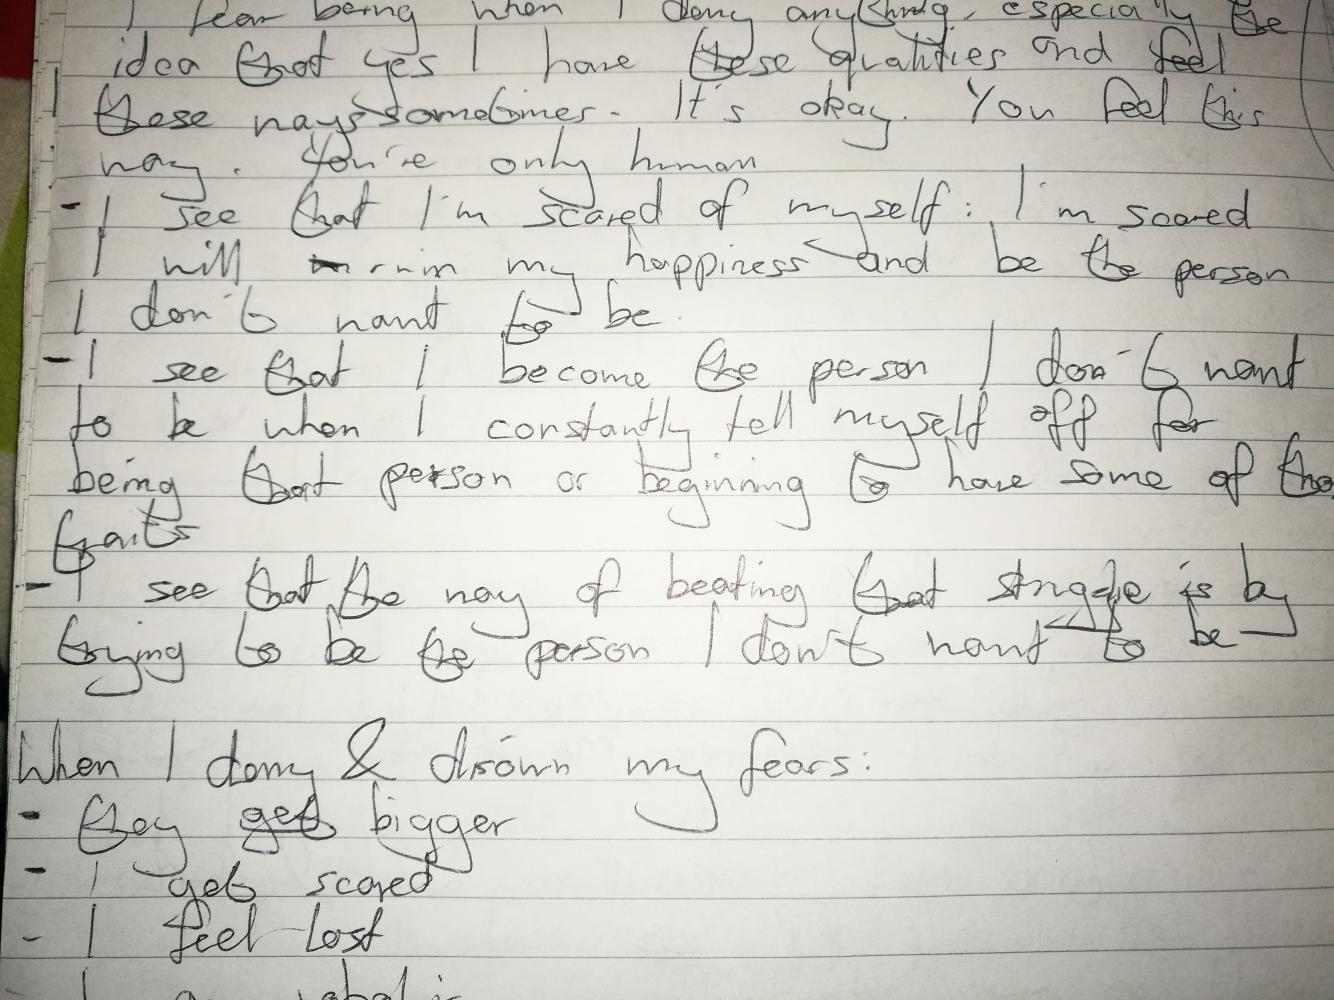 I fear being when I deny anything, especially the
idea that yes I have these qualities and feel
these ways sometimes. It's okay. You feel this
way. You're only human
- I see that I'm scared of myself: I'm scared
I will ruin my happiness and be the person
I don't want to be.
- I see that I become the person I don't want
to be when I constantly tell myself off for
being that person or begining to have some of tho
traits
- I see that the way of beating that struggle is by
trying to be the person I don't want to be
When I deny & drown my fears:
- they get bigger
- I get scared
- I feel lost
I